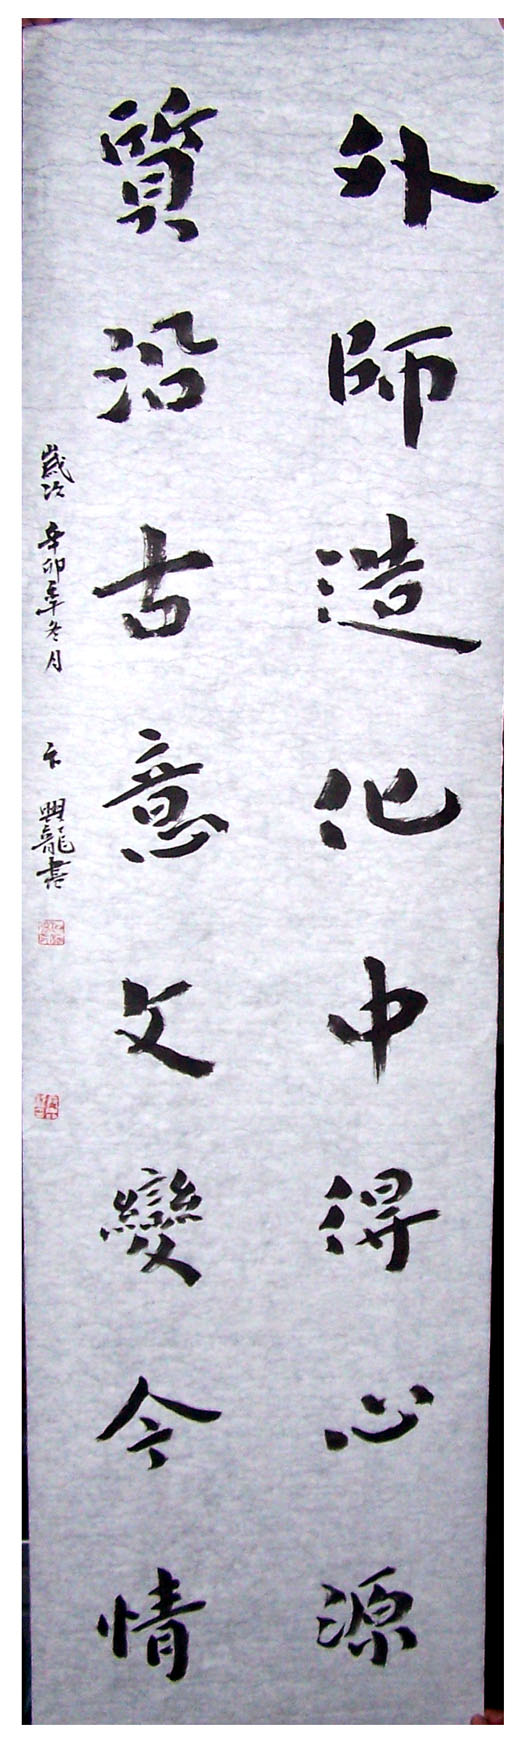 外師造化中得心源
質沿古意文變今情
歲次辛卯年冬月 卞興龍書